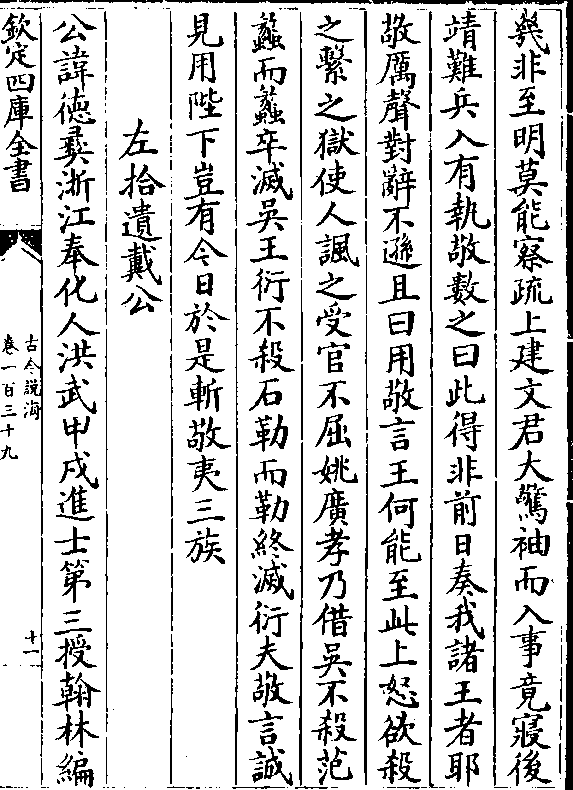 幾非至明莫能察疏上建文君大驚袖而入事竟寢後
靖難兵入有執敬數之曰此得非前日奏我諸王者耶
敬厲聲對辭不遜且曰用敬言王何能至此上怒欲殺
之繫之獄使人諷之受官不屈姚廣孝乃借吳不殺范
蠡而蠡卒滅吳王衍不殺石勒而勒終滅衍夫敬言誠
見用陛下豈有今日於是斬敬夷三族
左拾遺戴公
公諱徳彝浙江奉化人洪武甲戌進士第三授翰林編
欽定四庫全書
古今說海
卷一百三十九
十一